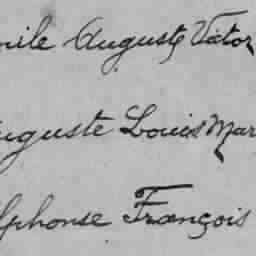 mile Auguste Victor
uguste Louis Mar
lphonse François